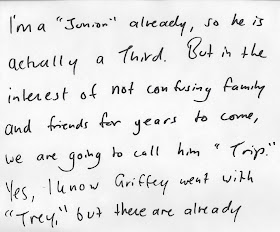 I'm a "Junior" already, so he is
actually a Third. But in the
interest of not confusing family
and friends for years to come,
we are going to call him "Trip."
Yes, I know Griffey went with
"Trey," but there are already